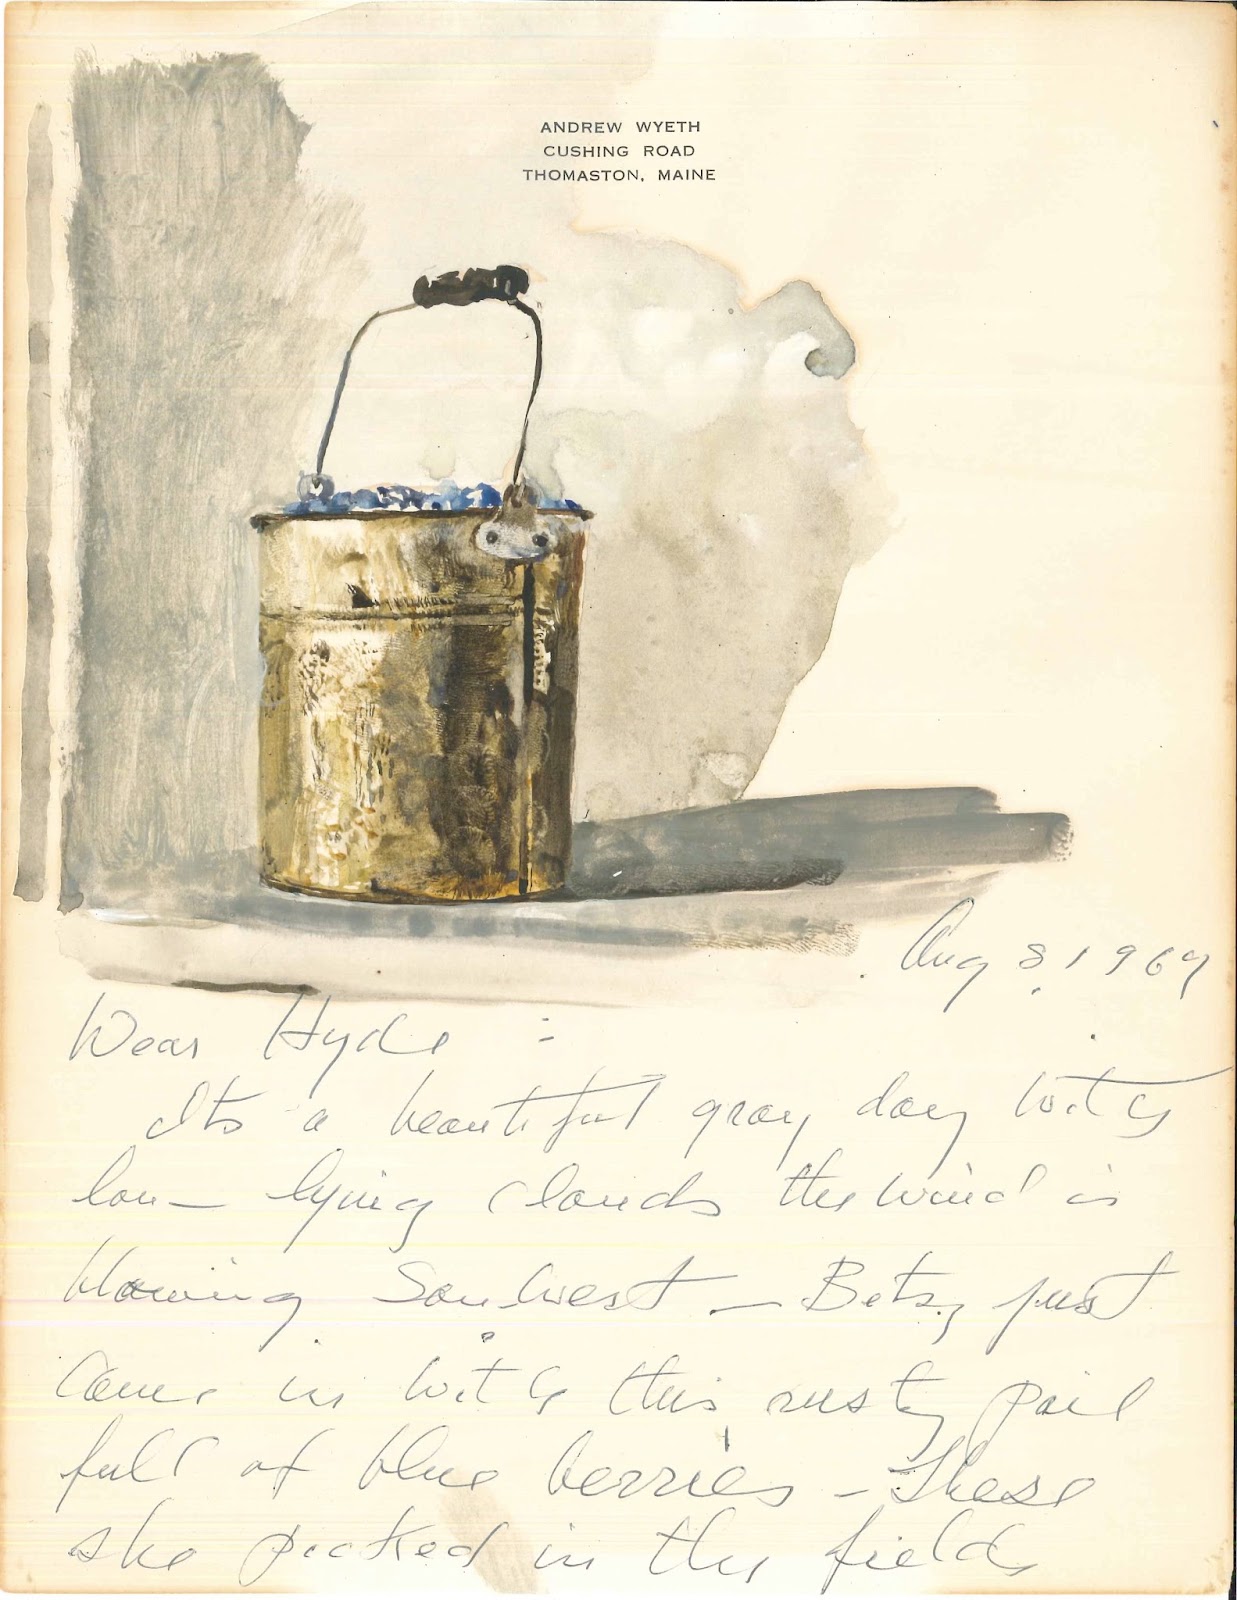 ANDREW WYETH
CUSHING ROAD
THOMASTON, MAINE
Aug 8, 1969
Dear Hyde :
Its a beautiful gray day with
low — lying clouds the wind is
blowing Sou.west — Betsy just
came in with this rusty pail
full of blue berries — These
she picked in the fields